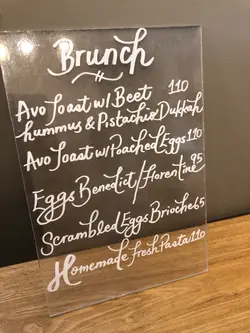 Brunch
Avo Toast w/ Beet 110
hummus & Pistachio Dukkah
Avo Toast w/ Poached Eggs 110
Eggs Benedict/florentine 95
Scrambled Eggs Brioche 65
Homemade fresh Pasta 110